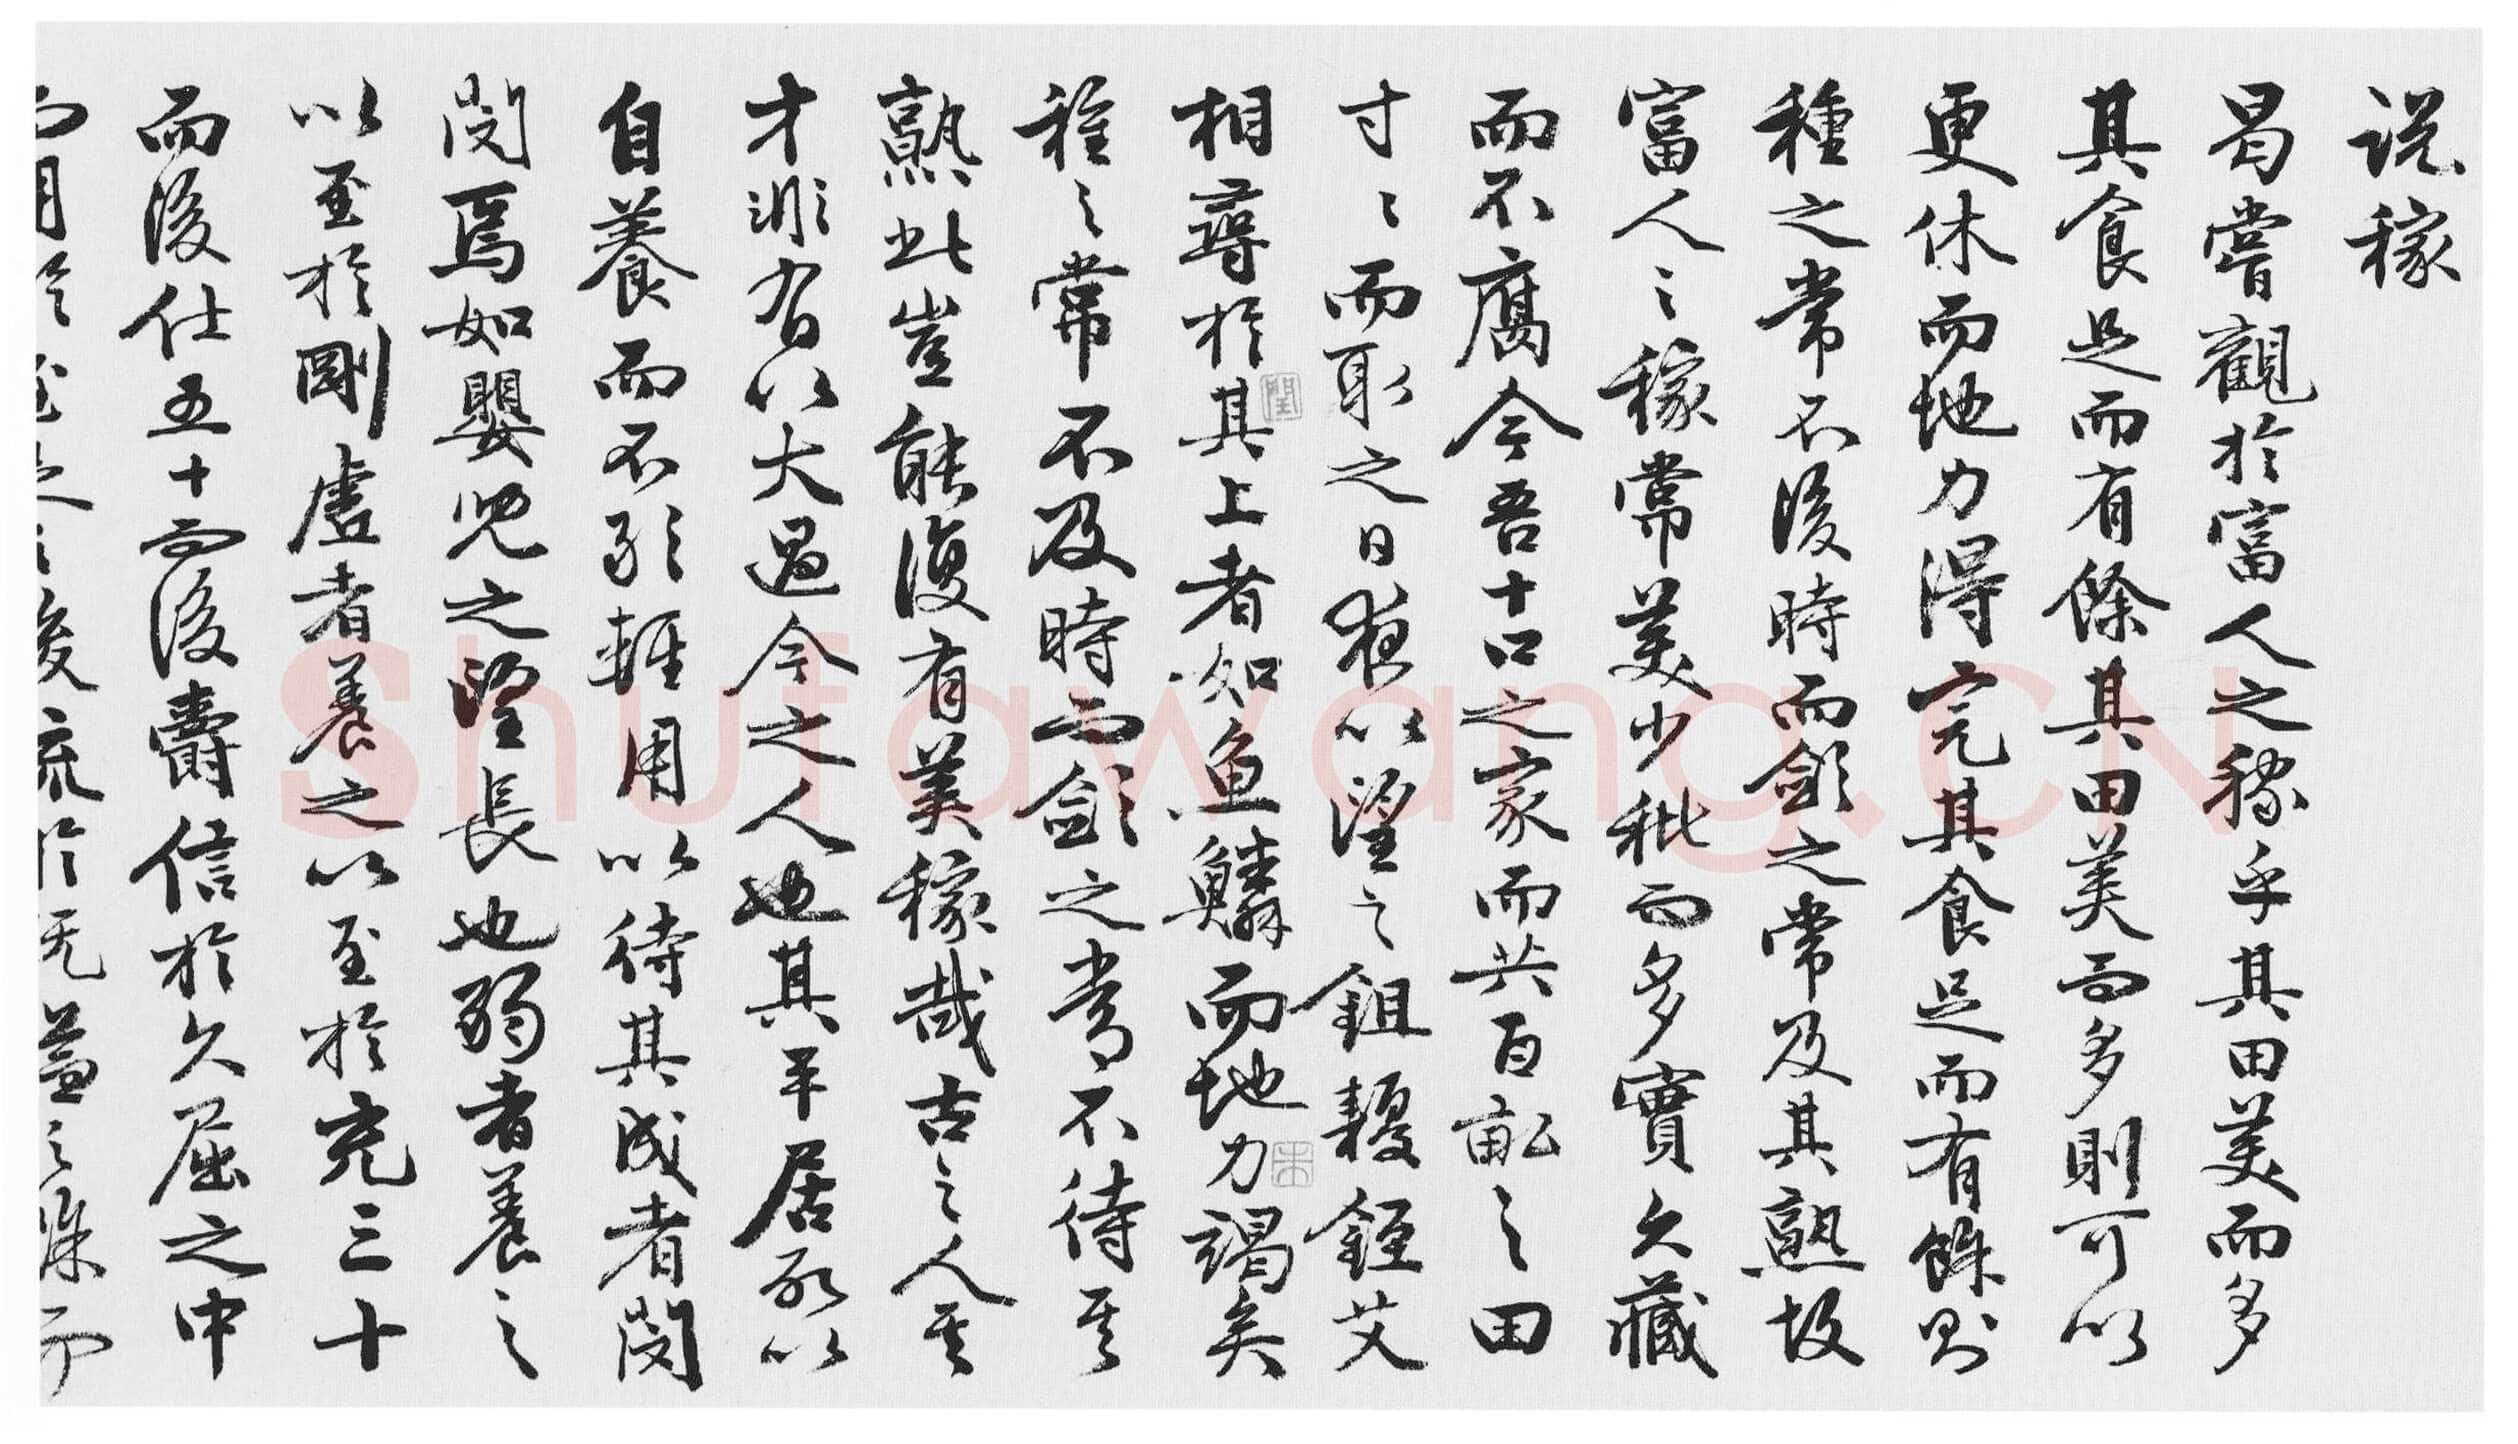 説稼
曷嘗觀於富人之稼乎其田美而多
其食足而有餘其田美而多則可以
更休而地力得完其食足而有餘則
種之常不後時而斂之常及其熟故
富人之稼常美少秕而多實久藏
而不腐今吾十口之家而共百畝之田
寸寸而取之日夜以望之鉏耰銍艾
相尋於其上者如魚鱗而地力竭矣
種之常不及時而斂之常不待其
熟此豈能復有美稼哉古之人其
才非有以大過今之人也其平居所以
自養而不敢輕用以待其成者閔
閔焉如嬰兒之望長也弱者養之
以至於剛虛者養之以至於充三十
而後仕五十而後爵信於久屈之中
而用於至足之後流於既溢之餘而
Shufawang.CN